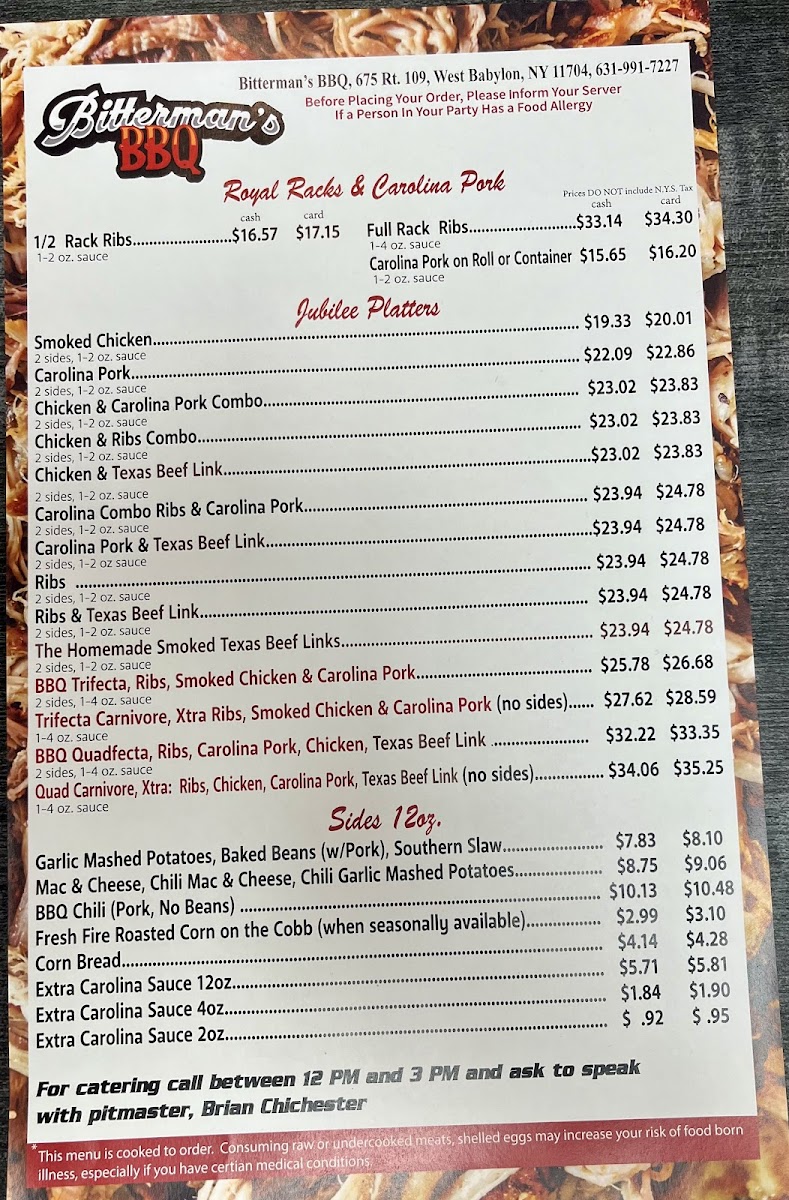 Bitterman's BBQ, 675 Rt. 109, West Babylon, NY 11704, 631-991-7227
Before Placing Your Order, Please Inform Your Server
If a Person In Your Party Has a Food Allergy
Bitterman's
BBQ
Royal Racks & Carolina Pork
Prices DO NOT include N.Y.S. Tax
cash card cash card
1/2 Rack Ribs..............................$16.57 $17.15 Full Rack Ribs..............................$33.14 $34.30
1-2 oz. sauce 1-4 oz. sauce
Carolina Pork on Roll or Container $15.65 $16.20
1-2 oz. sauce
Jubilee Platters
Smoked Chicken.............................. $19.33 $20.01
2 sides, 1-2 oz. sauce
Carolina Pork.............................. $22.09 $22.86
2 sides, 1-2 oz. sauce
Chicken & Carolina Pork Combo.............................. $23.02 $23.83
2 sides, 1-2 oz. sauce
Chicken & Ribs Combo.............................. $23.02 $23.83
2 sides, 1-2 oz. sauce
Chicken & Texas Beef Link..............................$23.02 $23.83
2 sides, 1-2 oz. sauce
Carolina Combo Ribs & Carolina Pork.............................. $23.94 $24.78
2 sides, 1-2 oz. sauce
Carolina Pork & Texas Beef Link..............................$23.94 $24.78
2 sides, 1-2 oz sauce
Ribs .............................. $23.94 $24.78
2 sides, 1-2 oz. sauce
Ribs & Texas Beef Link.............................. $23.94 $24.78
2 sides, 1-2 oz. sauce
The Homemade Smoked Texas Beef Links.............................. $23.94 $24.78
2 sides, 1-2 oz. sauce
BBQ Trifecta, Ribs, Smoked Chicken & Carolina Pork.............................. $25.78 $26.68
2 sides, 1-4 oz. sauce
Trifecta Carnivore, Xtra Ribs, Smoked Chicken & Carolina Pork (no sides)...... $27.62 $28.59
1-4 oz. sauce
BBQ Quadfecta, Ribs, Carolina Pork, Chicken, Texas Beef Link ...................... $32.22 $33.35
2 sides, 1-4 oz. sauce
Quad Carnivore, Xtra: Ribs, Chicken, Carolina Pork, Texas Beef Link (no sides)................ $34.06 $35.25
1-4 oz. sauce
Sides 12oz.
Garlic Mashed Potatoes, Baked Beans (w/Pork), Southern Slaw...................... $7.83 $8.10
Mac & Cheese, Chili Mac & Cheese, Chili Garlic Mashed Potatoes................... $8.75 $9.06
BBQ Chili (Pork, No Beans) .............................. $10.13 $10.48
Fresh Fire Roasted Corn on the Cobb (when seasonally available)................. $2.99 $3.10
Corn Bread.............................. $4.14 $4.28
Extra Carolina Sauce 12oz.............................. $5.71 $5.81
Extra Carolina Sauce 4oz.............................. $1.84 $1.90
Extra Carolina Sauce 2oz.............................. $ .92 $ .95
For catering call between 12 PM and 3 PM and ask to speak
with pitmaster, Brian Chichester
*This menu is cooked to order. Consuming raw or undercooked meats, shelled eggs may increase your risk of food born
illness, especially if you have certian medical conditions.